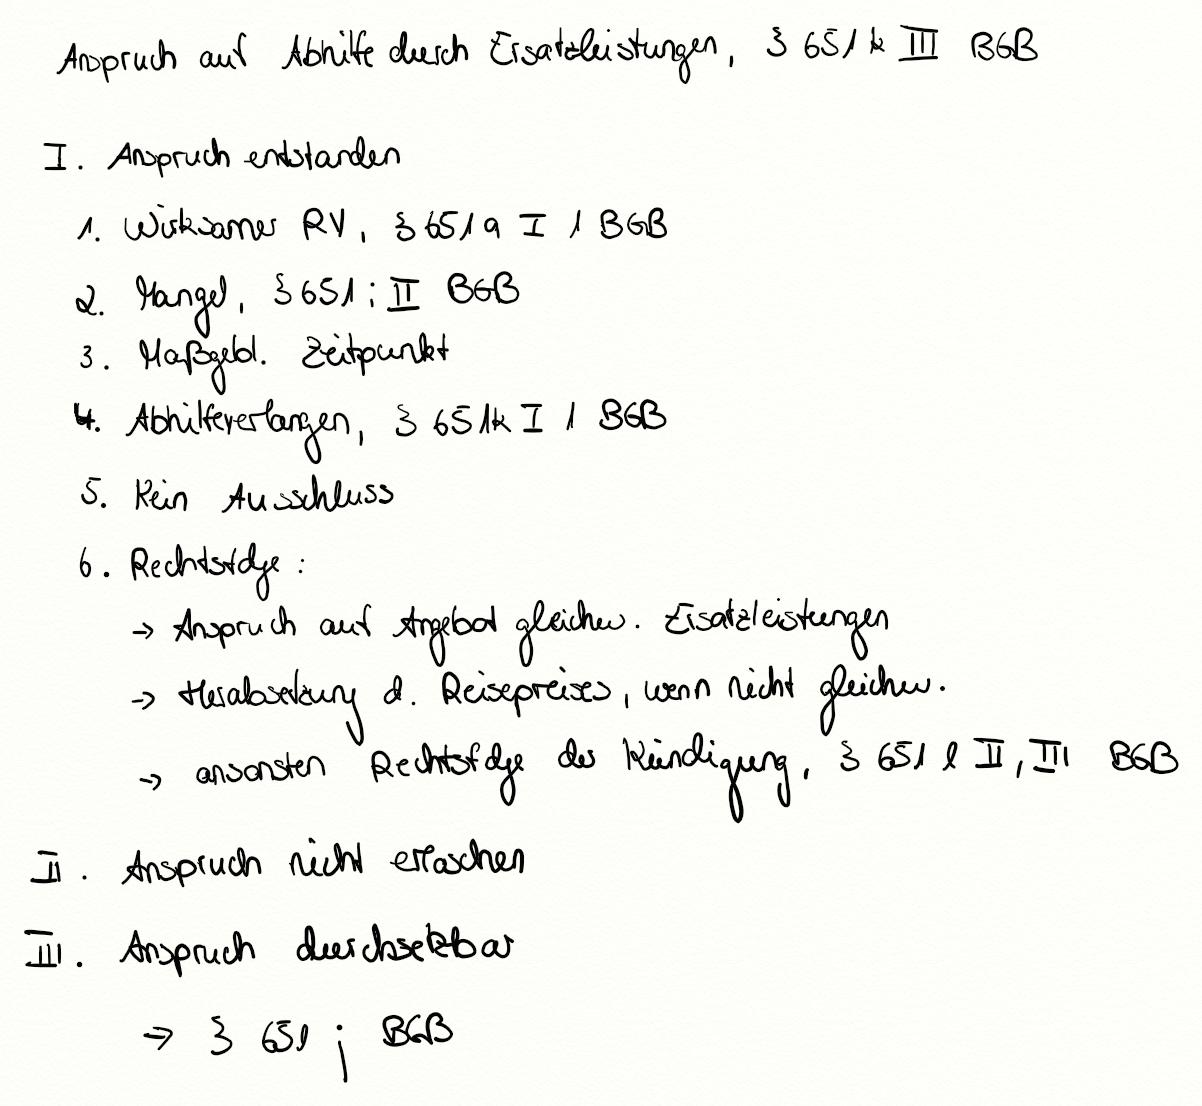 Anspruch auf Abhilfe durch Ersatzleistungen, § 651 k III BGB
I. Anspruch entstanden
1. Wirksamer RV, § 651 a I 1 BGB
2. Mangel, § 651 i II BGB
3. Maßgebl. Zeitpunkt
4. Abhilfeverlangen, § 651k I 1 BGB
5. Kein Ausschluss
6. Rechtsfolge:
→ Anspruch auf Angebot gleichw. Ersatzleistungen
→ Herabsetzung d. Reisepreises, wenn nicht gleichw.
→ ansonsten Rechtsfolge der Kündigung, § 651 l II, III BGB
II. Anspruch nicht erloschen
III. Anspruch durchsetzbar
→ § 651 j BGB